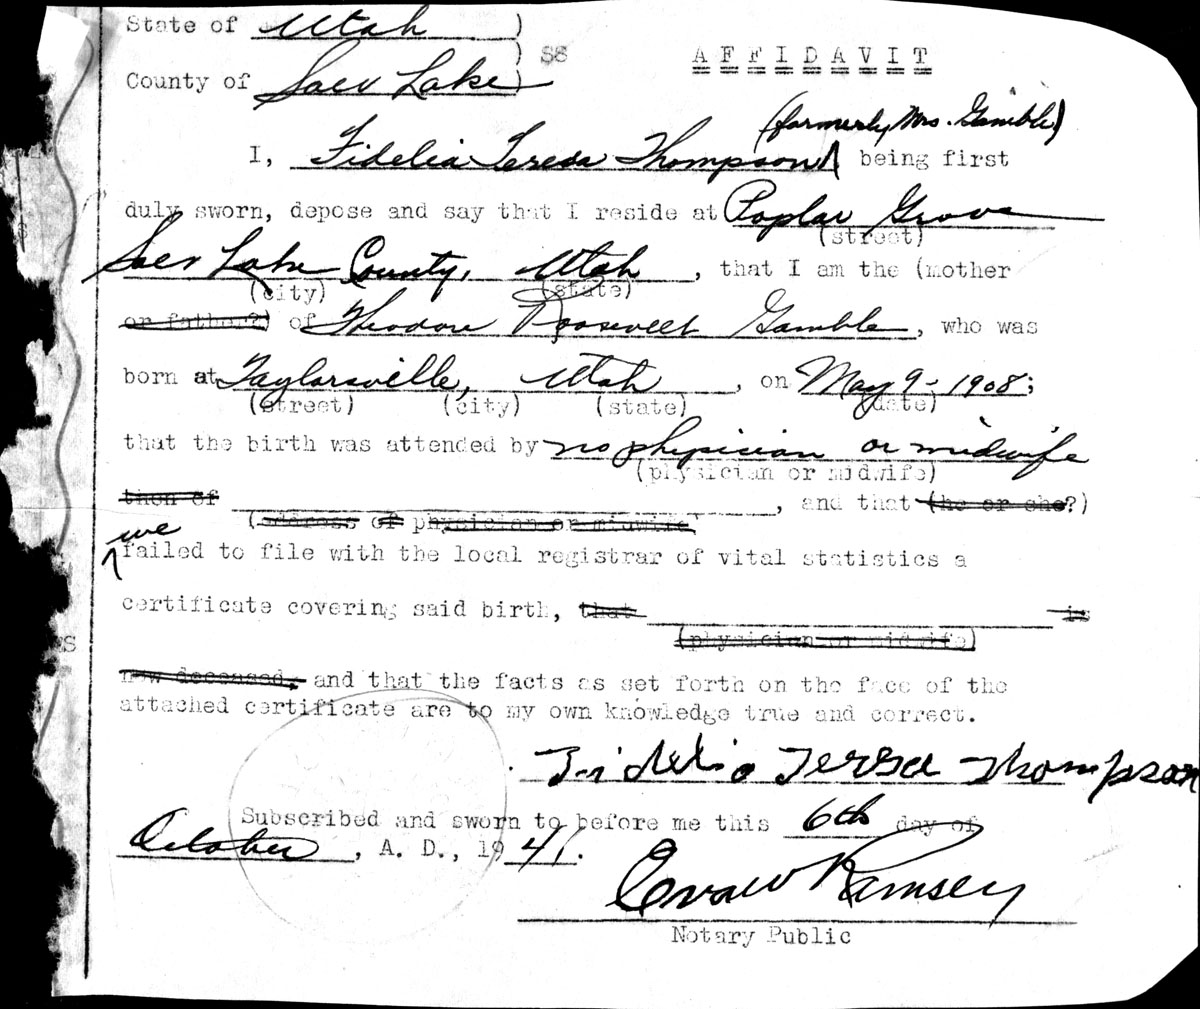 State of Utah )
) SS
AFFIDAVIT
County of Salt Lake )
(formerly Mrs. Gamble)
I, Fidelia Teresa Thompson being first
duly sworn, depose and say that I reside at Poplar Grove
(street)
Salt Lake County, Utah, that I am the (mother
(city) (state)
or father?) of Theodore Roosevelt Gamble, who was
born at Taylorsville, Utah, on May 9- 1908;
(street) (city) (state) (date)
that the birth was attended by no physician or midwife
(physician or midwife)
then of , and that (he or she?)
(address of physician or midwife)
we
failed to file with the local registrar of vital statistics a
certificate covering said birth, that is
(physician or midwife)
now deceased, and that the facts as set forth on the face of the
attached certificate are to my own knowledge true and correct.
Fidelia Tersa Thompson
Subscribed and sworn to before me this 6th day of
October, A. D., 1941.
Ramsey
Notary Public